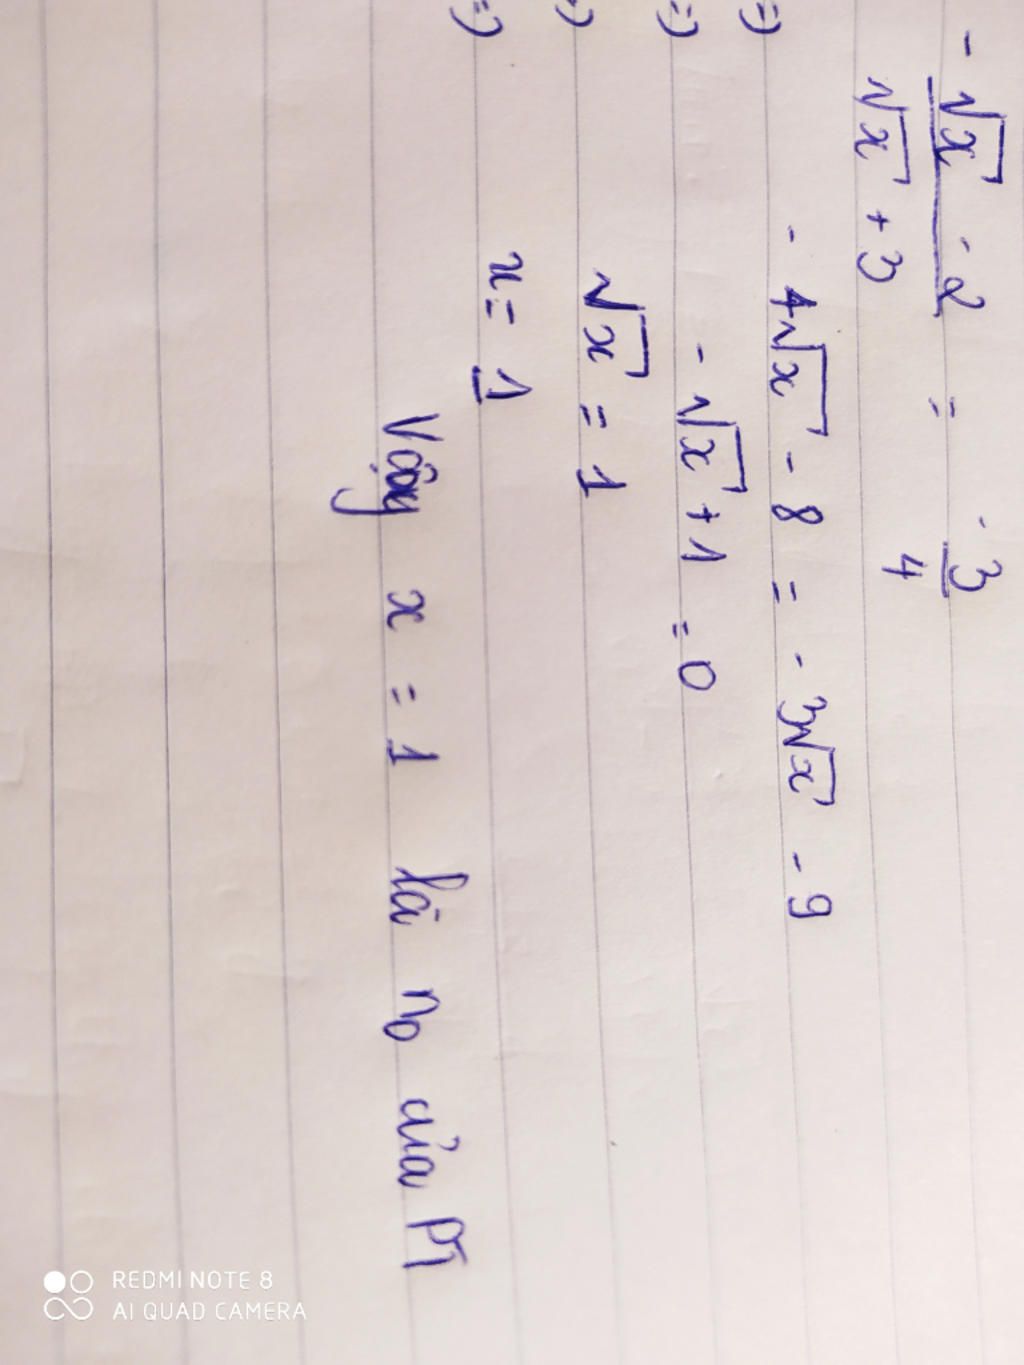 - √x - 2 / √x + 3 = - 3 / 4
=) - 4√x - 8 = - 3√x - 9
=) - √x + 1 = 0
=) √x = 1
=) x = 1
Vậy x = 1 là no của PT
REDMI NOTE 8
AI QUAD CAMERA